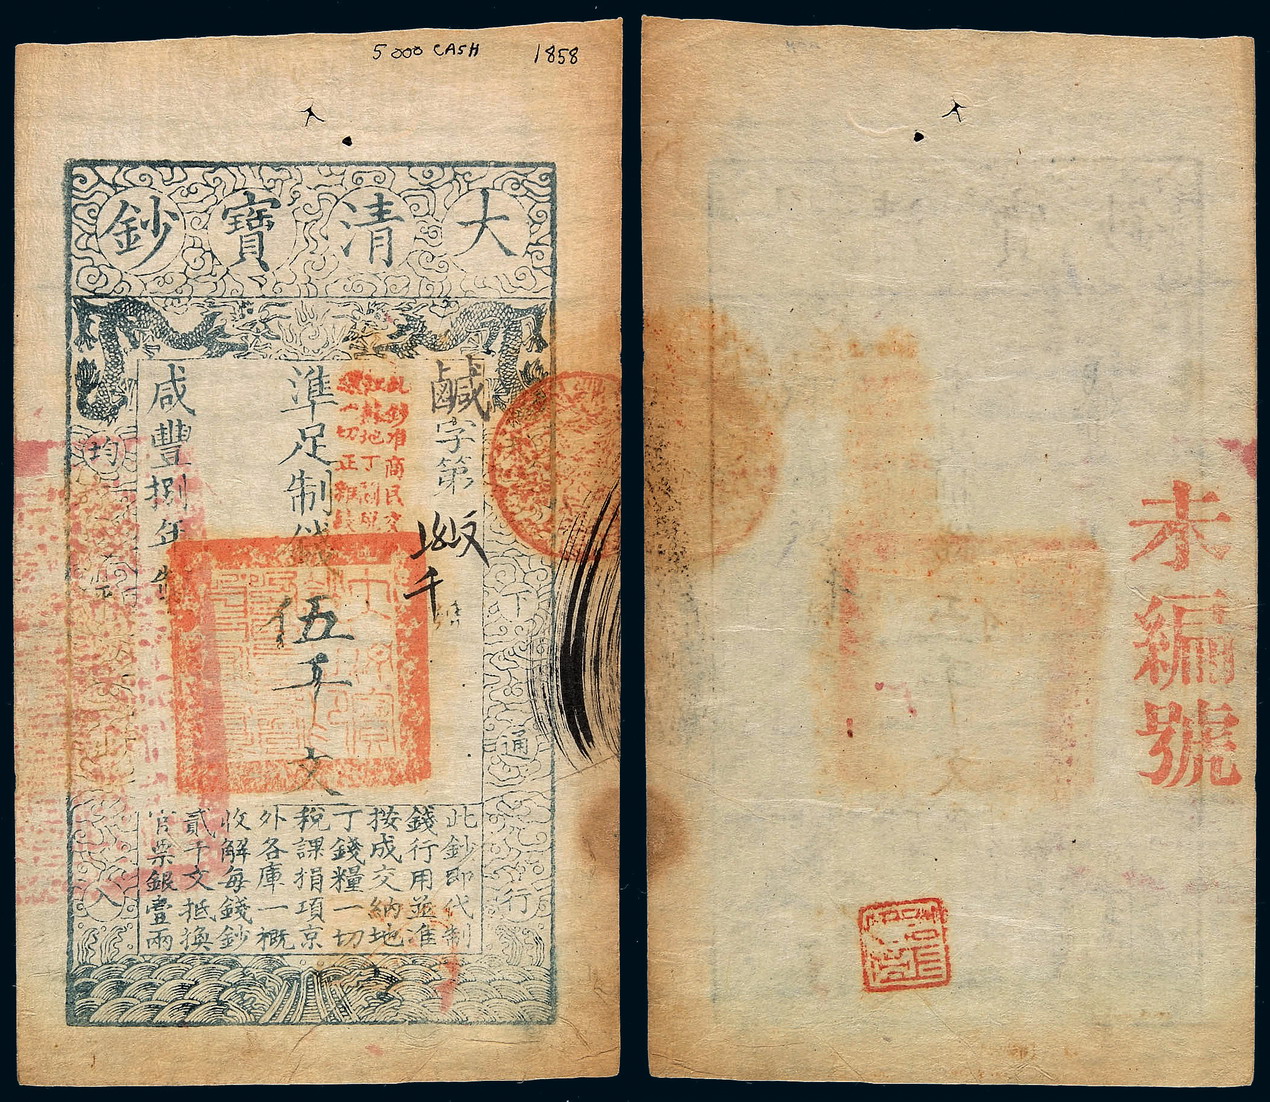 5000 CASH 1858
大清寶鈔
鹹字第
準足制錢伍千文
咸豐捌年製
此鈔即代制
錢行用並准
按成交納地
丁錢糧一切
稅課捐項京
外各庫一概
收解每錢鈔
貳千文抵換
官票銀壹兩
天下通行
均平出入
此鈔准商民交
江蘇地丁關稅
一切正雜
未編號